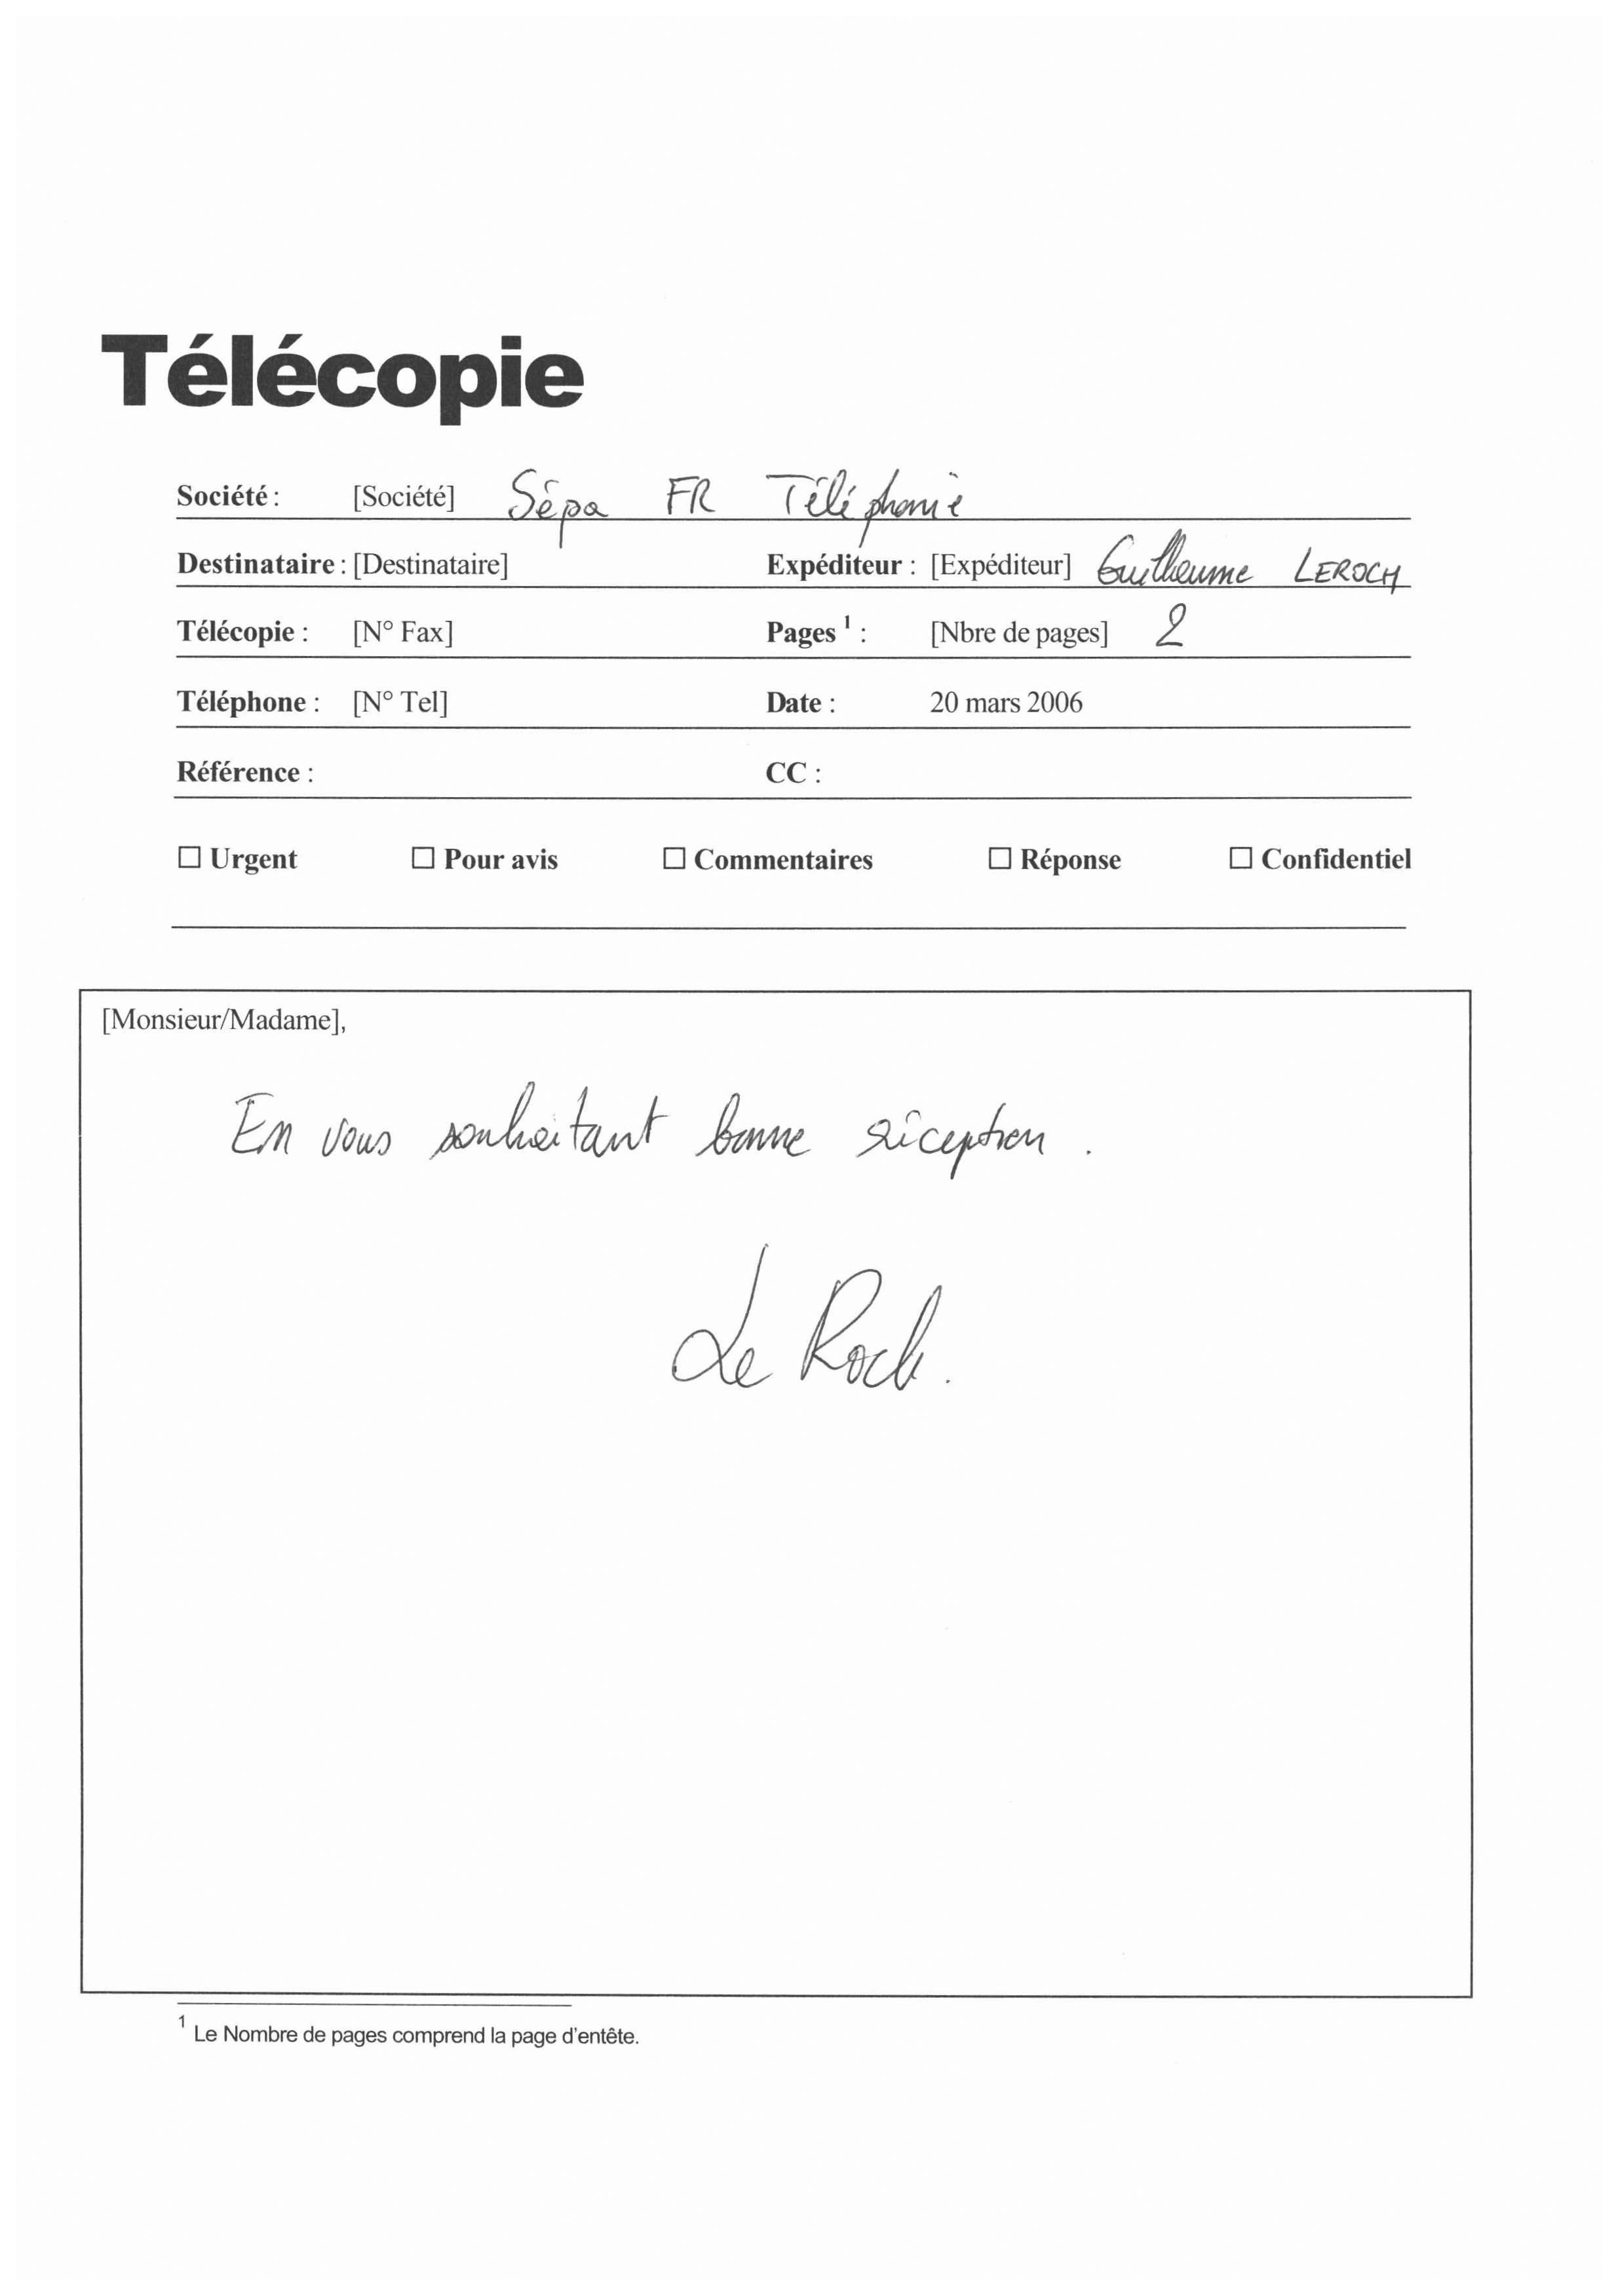 Télécopie
Société : [Société] Sépa FR Téléphonie
Destinataire : [Destinataire] Expéditeur : [Expéditeur] Guilheume LEROCH
Télécopie : [N° Fax] Pages 1 : [Nbre de pages] 2
Téléphone : [N° Tel] Date : 20 mars 2006
Référence : CC :
☐ Urgent ☐ Pour avis ☐ Commentaires ☐ Réponse ☐ Confidentiel
[Monsieur/Madame],
En vous souhaitant bonne réception.
Le Roch.
1 Le Nombre de pages comprend la page d'entête.